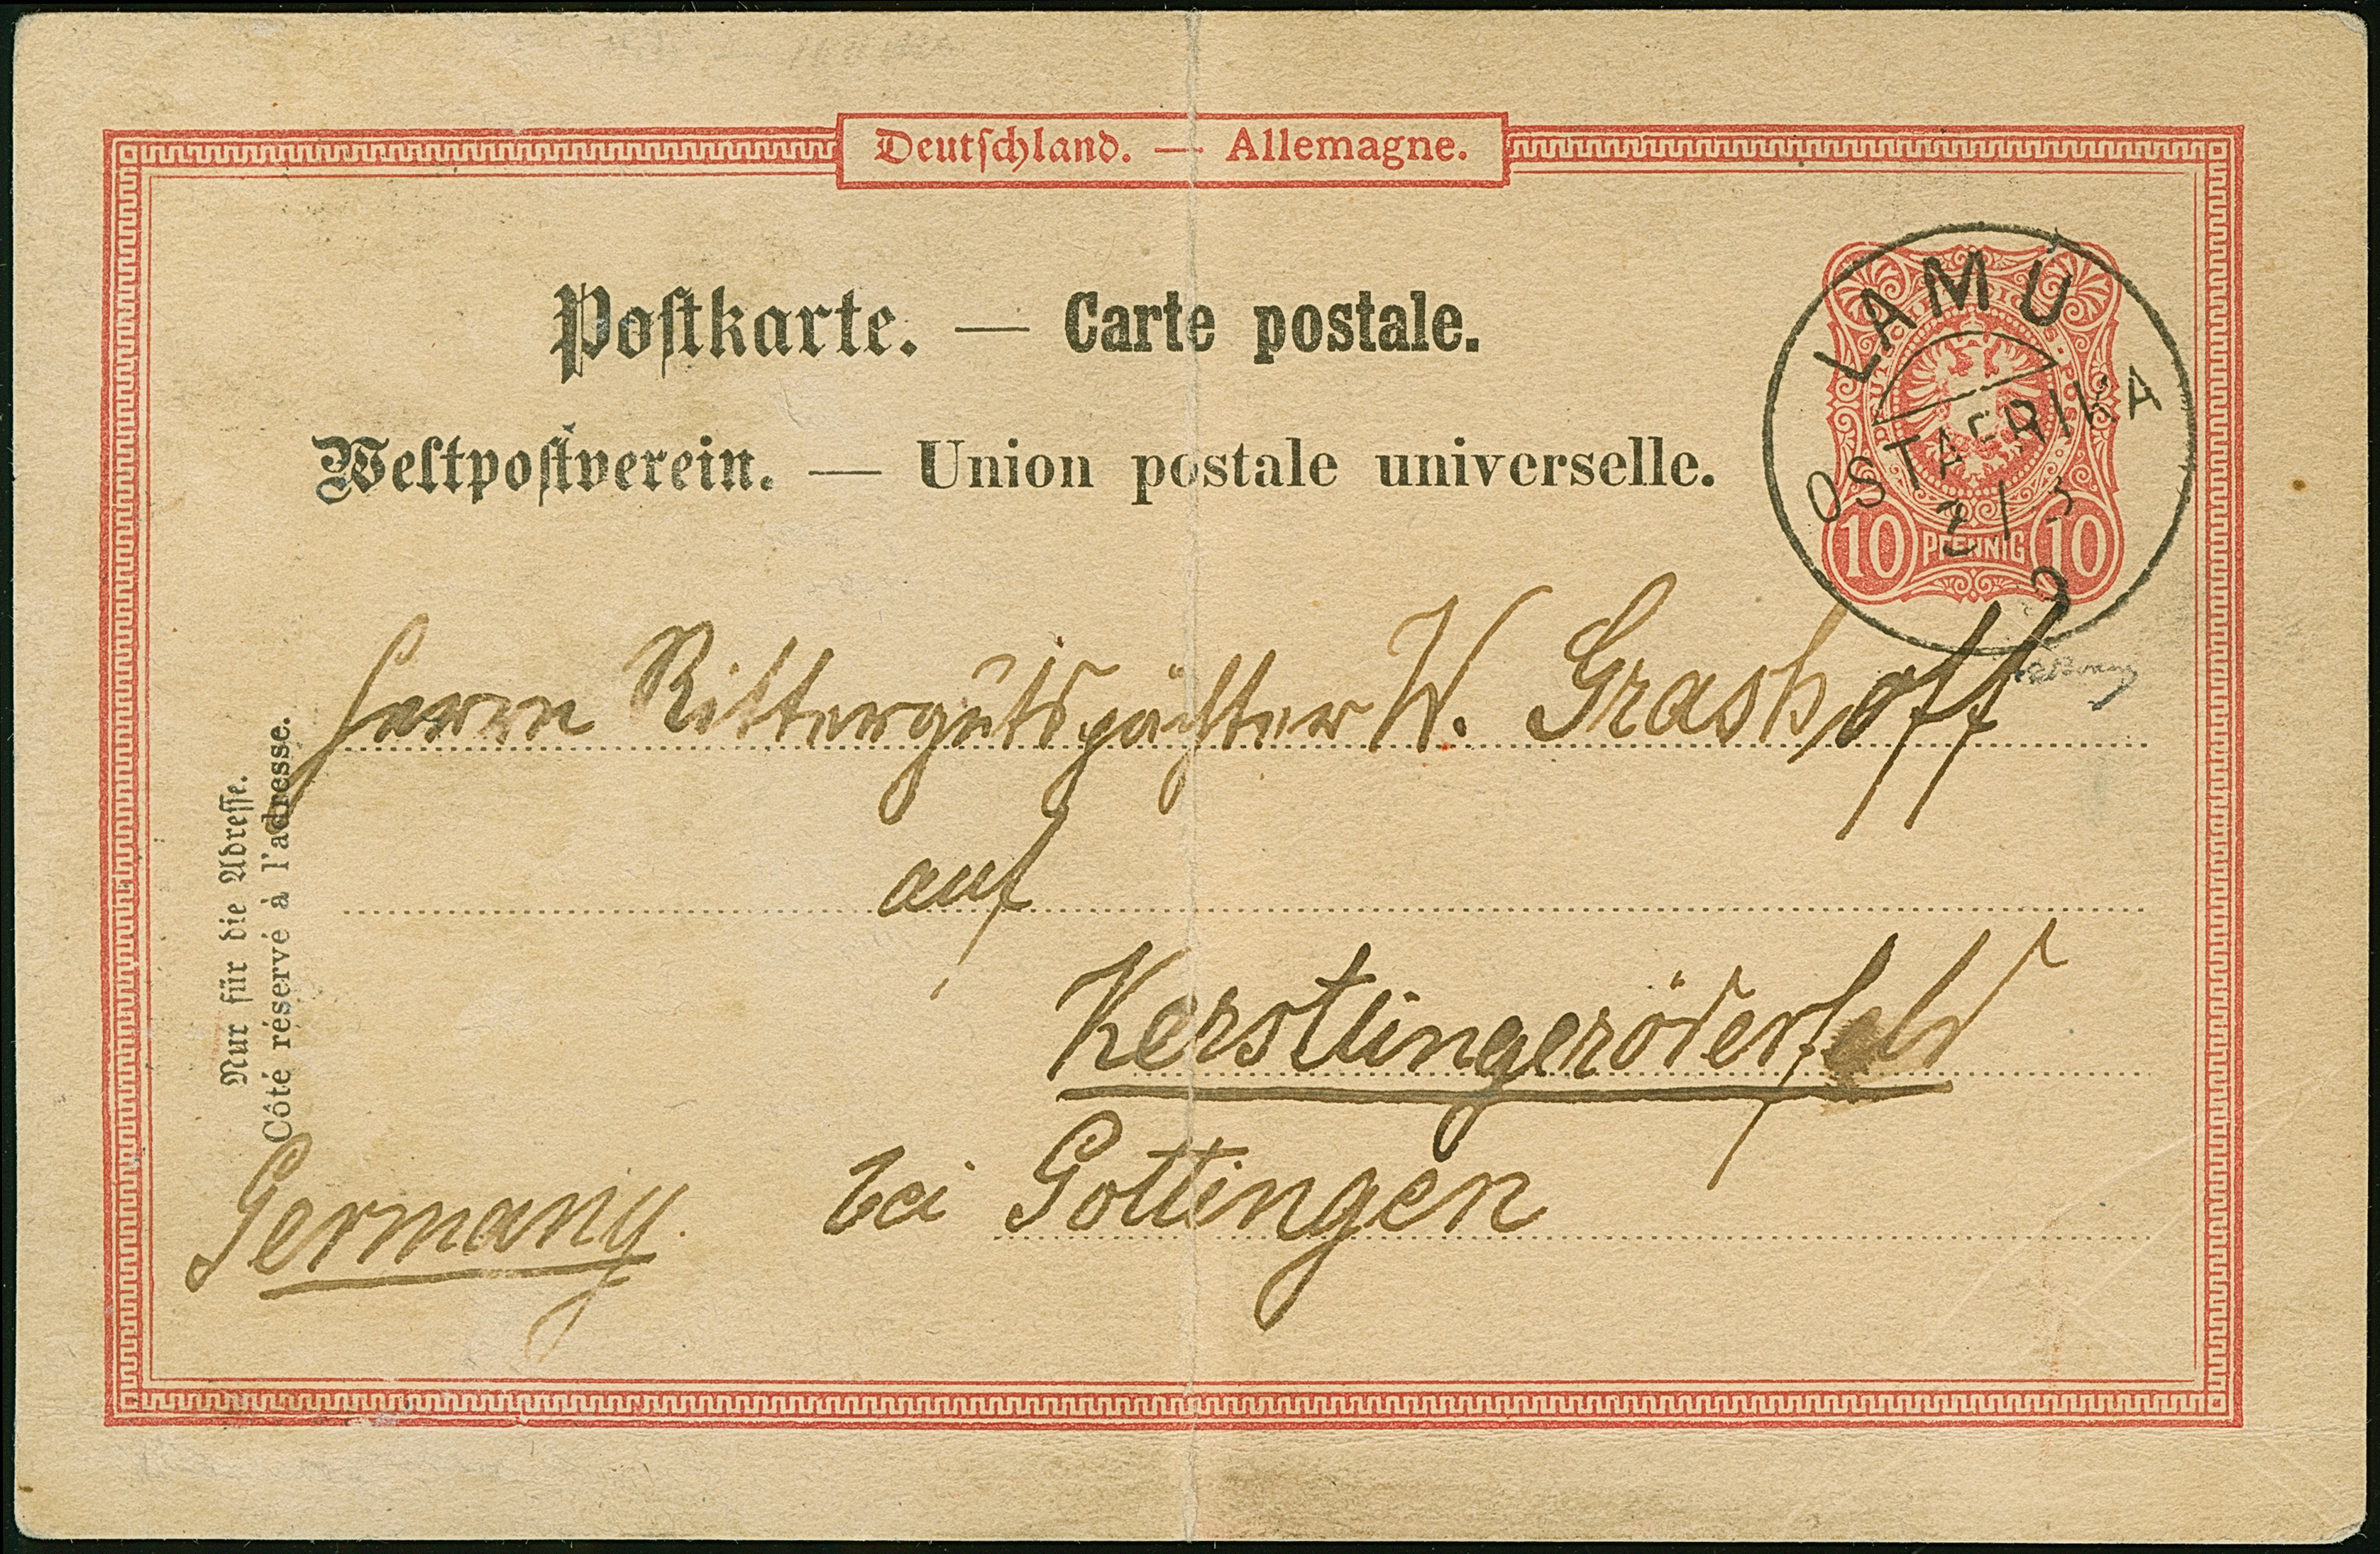 Deutschland. — Allemagne.
Postkarte. — Carte postale.
Weltpostverein. — Union postale universelle.
LAMU
OSTAFRIKA
3/3
10 PFENNIG 10
Herrn Rittergutspächter W. Grashoff
auf
Kerstlingeröderfeld
bei Göttingen
Germany.
Nur für die Adresse.
Côté réservé à l'adresse.